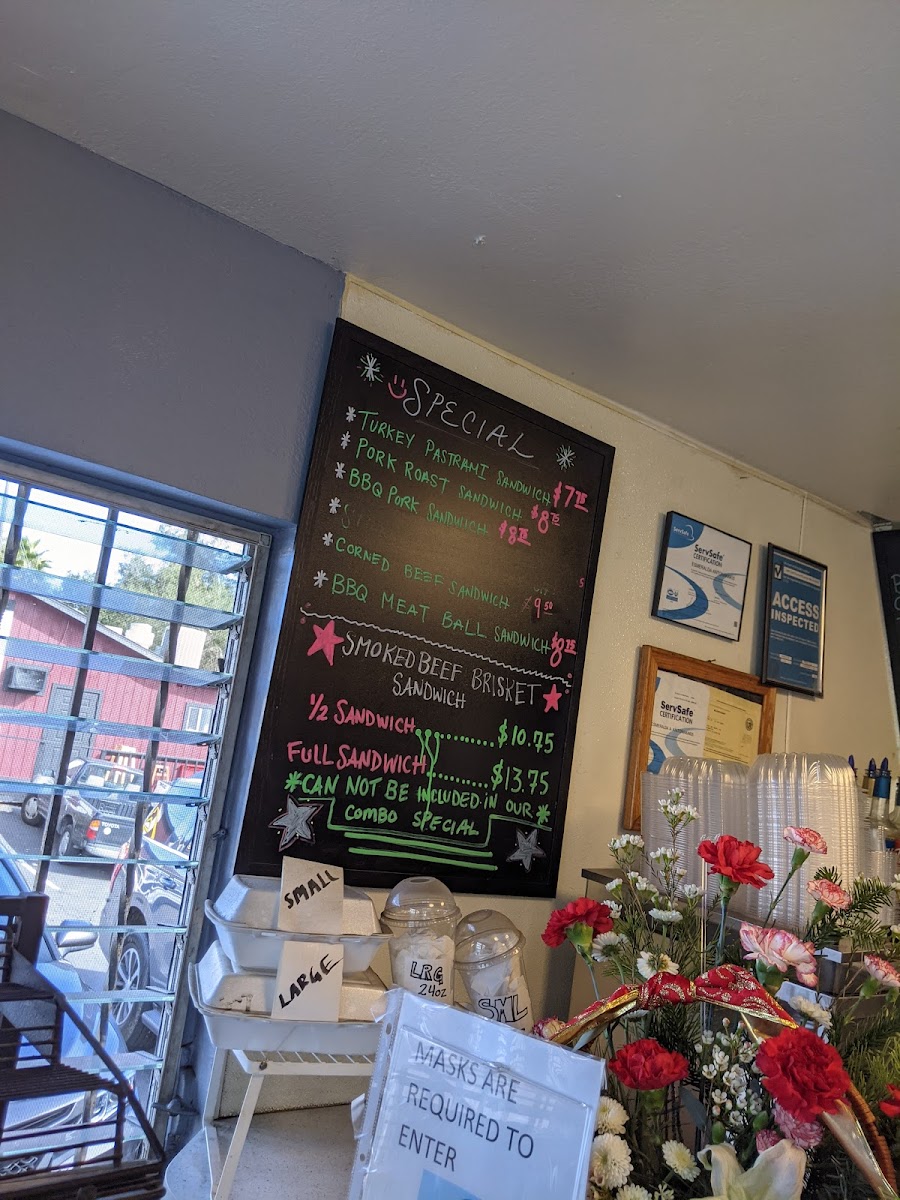 SPECIAL
* TURKEY PASTRAMI SANDWICH $7.75
* PORK ROAST SANDWICH $8.75
* BBQ PORK SANDWICH $8.75
*
* CORNED BEEF SANDWICH $9.50
* BBQ MEAT BALL SANDWICH $8.75
SMOKED BEEF BRISKET
SANDWICH
1/2 SANDWICH..........$10.75
FULL SANDWICH.........$13.75
*CAN NOT BE INCLUDED IN OUR*
COMBO SPECIAL
ServSafe
ServSafe
CERTIFICATION
ACCESS
INSPECTED
ServSafe
CERTIFICATION
SMALL
LARGE
LRG
24oz
SML
MASKS ARE
REQUIRED TO
ENTER